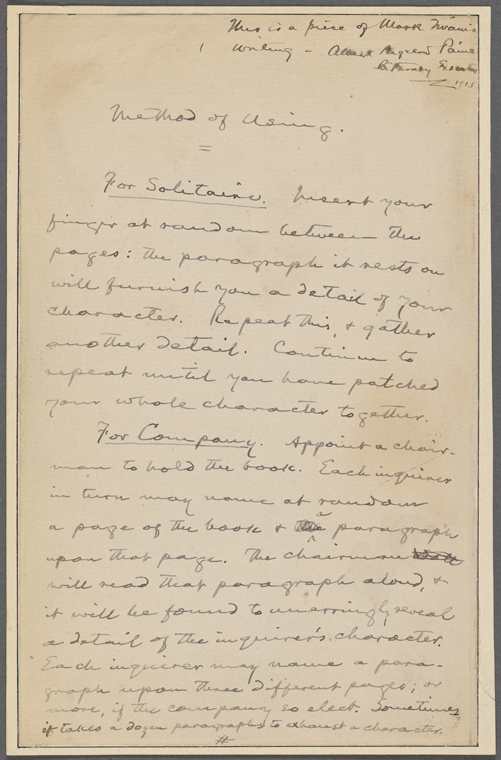 This is a piece of Mark Twain's
writing – Albert Bigelow Paine
Literary Executor
1911
Method of Using.
=
For Solitaire. Insert your
finger at random between the
pages: the paragraph it rests on
will furnish you a detail of your
character. Repeat this, & gather
another detail. Continue to
repeat until you have patched
your whole character together.
For Company. Appoint a chair-
man to hold the book. Each inquirer
in turn may name at random
a page of the book & a paragraph
upon that page. The chairman
will read that paragraph aloud, &
it will be found to unerringly reveal
a detail of the inquirer's character.
Each inquirer may name a para-
graph upon three different pages; or
more, if the company so elect. Sometimes
it takes a dozen paragraphs to exhaust a character.
#